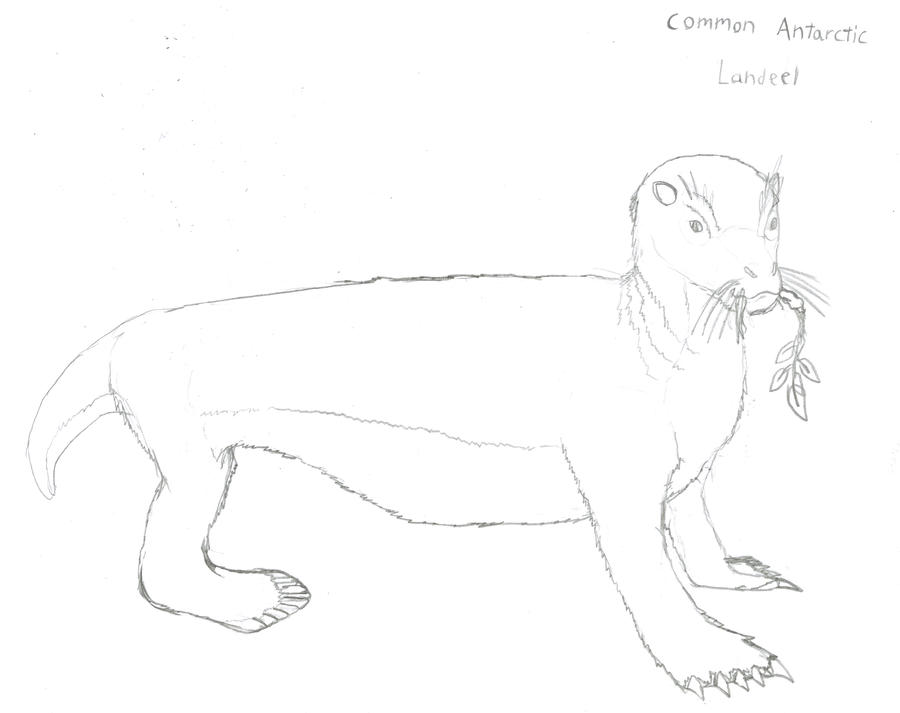 Common Antarctic
Landeel